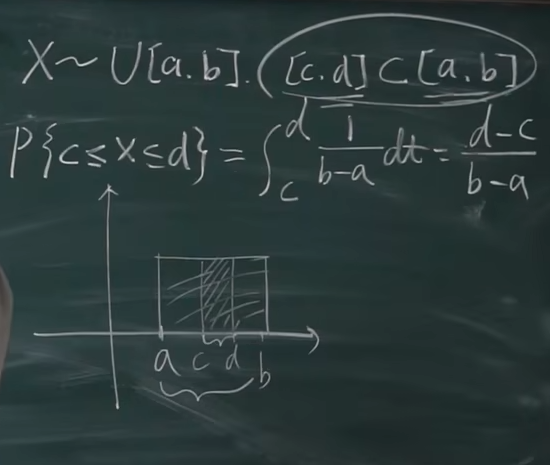 X~U[a.b]. [c.d]⊂[a.b]
P{c≤X≤d}=∫_c^d 1/(b-a) dt = (d-c)/(b-a)
a c d b